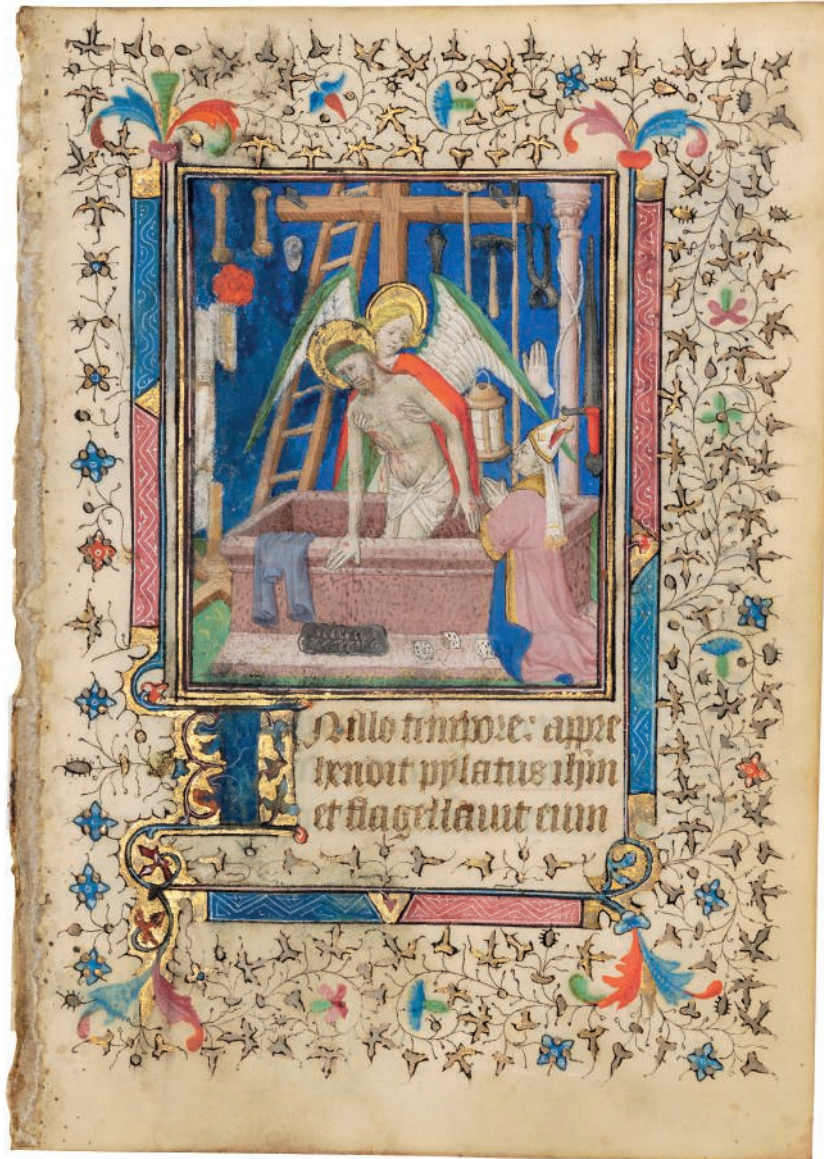 In illo tempore: appre
hendit pylatus ihm
et flagellauit eum